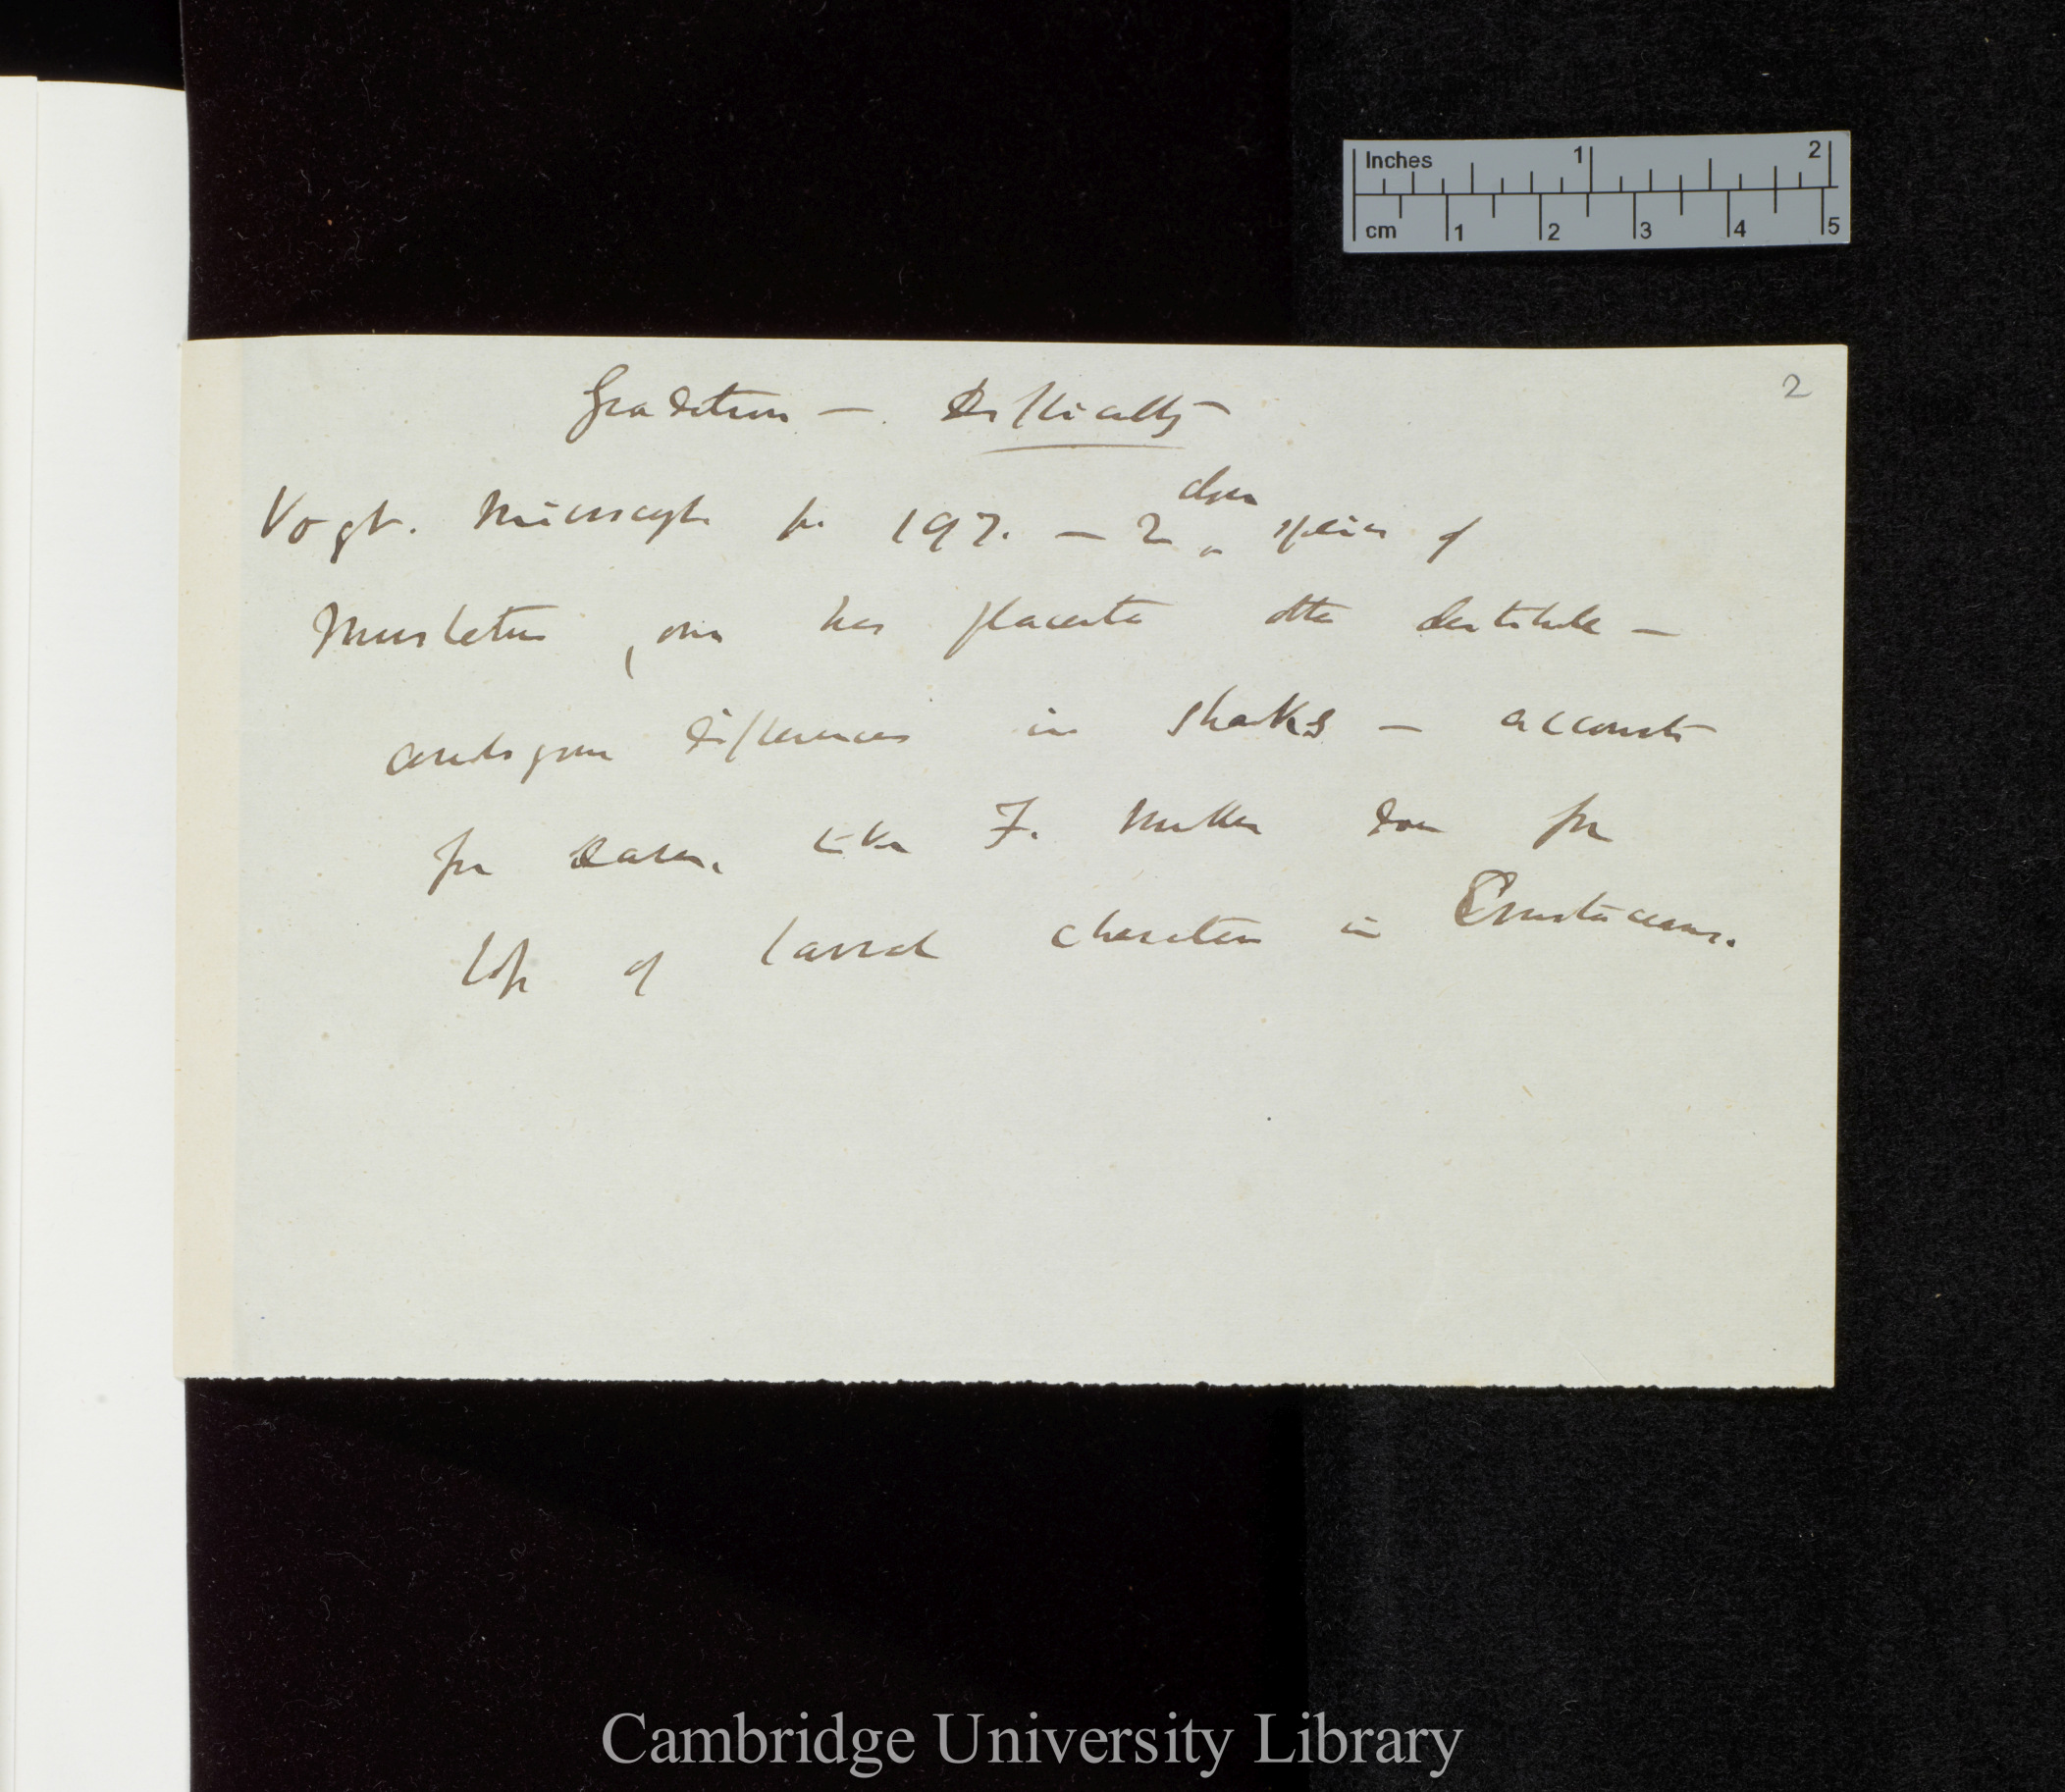 Inches 1 2
cm 1 2 3 4 5
2
Gradation — Difficulty
Vogt. Microceph p. 197. — 2 close species of
Mustelus, one has placenta other destitute —
analogous differences in sharks — accounts
for same, like F. Muller does for
loss of larval characters in Crustaceans.
Cambridge University Library